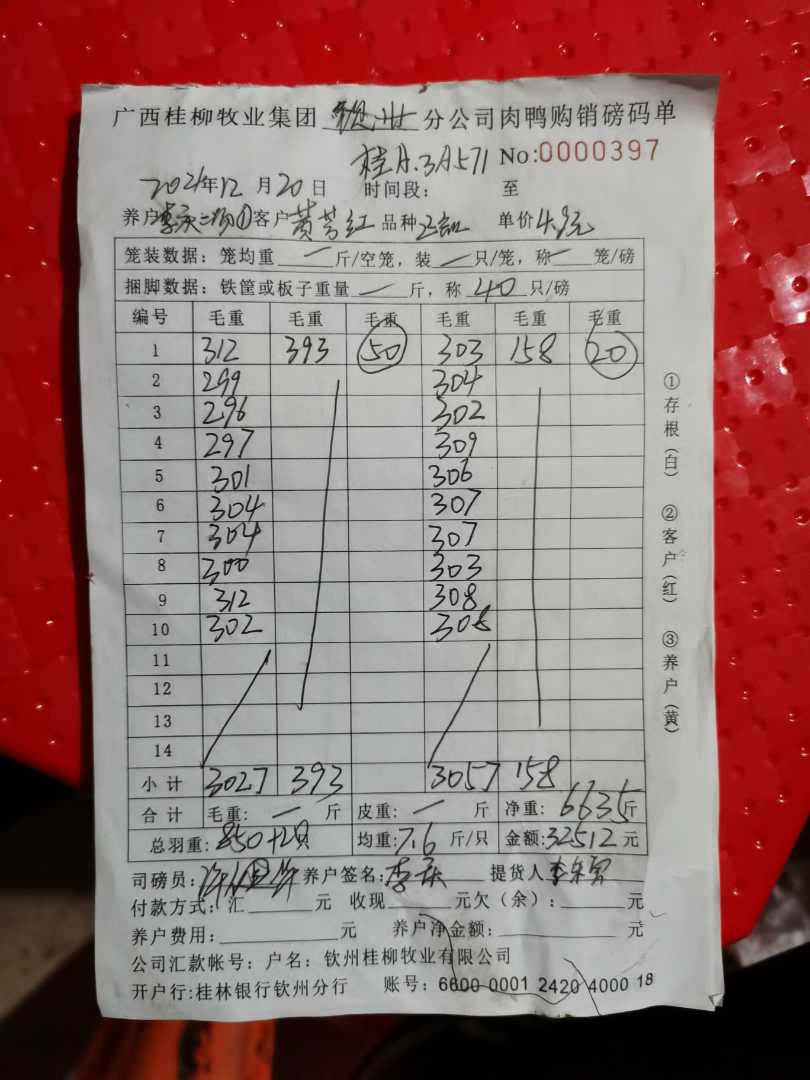 广西桂柳牧业集团 钦州 分公司肉鸭购销磅码单
桂A.3A571 No:0000397
2021年12月20日 时间段: 至
养户 李庆二场① 客户 黄芳红 品种 单价 4.9元
笼装数据: 笼均重 一 斤/空笼, 装 一 只/笼, 称 一 笼/磅
捆脚数据: 铁筐或板子重量 一 斤, 称 40 只/磅
编号 毛重 毛重 毛重 毛重 毛重 毛重
1 312 393 50 303 158 20
2 299 304
3 296 302
4 297 309
5 301 306
6 304 307
7 304 307
8 300 303
9 312 308
10 302 308
11
12
13
14
小计 3027 393 3057 158
合计 毛重: 一 斤 皮重: 一 斤 净重: 6635斤
总羽重: 850+20只 均重: 7.6 斤/只 金额: 32512元
司磅员: 养户签名: 李庆 提货人
付款方式: 汇 元 收现 元欠(余): 元
养户费用: 元 养户净金额: 元
公司汇款帐号: 户名: 钦州桂柳牧业有限公司
开户行:桂林银行钦州分行 账号: 6600 0001 2420 4000 18
①存根(白) ②客户(红) ③养户(黄)